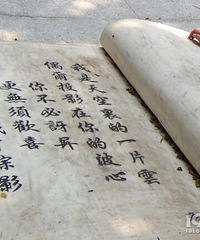 我是天空裏的一片雲
偶爾投影在你的波心
你不必訝異
更無須歡喜
蹤影